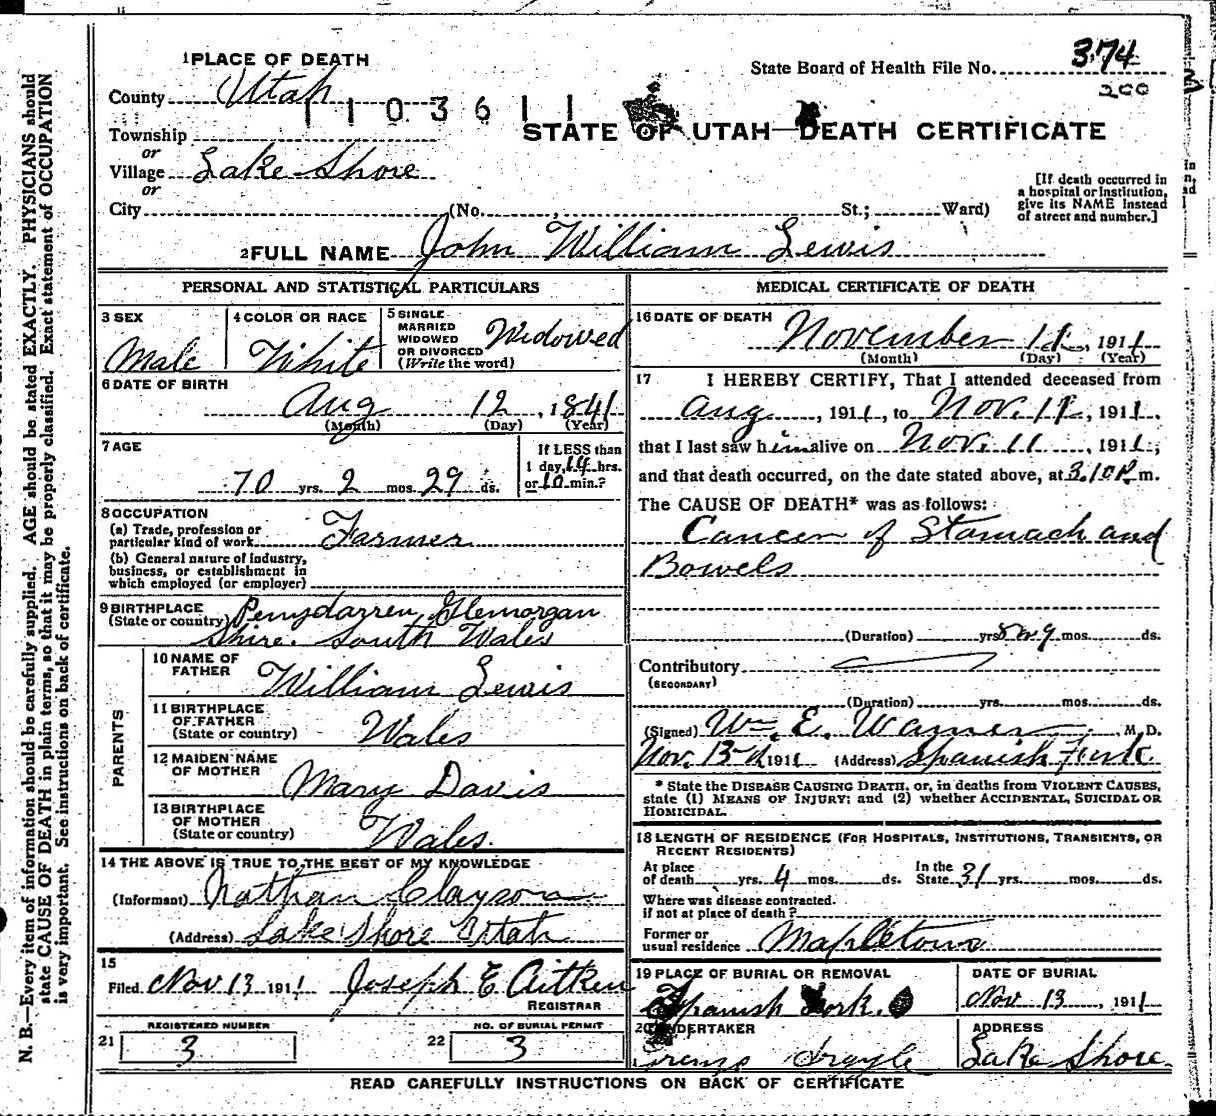 1 PLACE OF DEATH
State Board of Health File No. 374
200
County Utah
1103611
STATE OF UTAH—DEATH CERTIFICATE
Township
or
Village Lake Shore
or
[If death occurred in
a hospital or institution,
give its NAME instead
of street and number.]
City (No. , St.; Ward)
2 FULL NAME John William Lewis
PERSONAL AND STATISTICAL PARTICULARS
3 SEX
Male
4 COLOR OR RACE
White
5 SINGLE
MARRIED
WIDOWED
OR DIVORCED
(Write the word)
Widowed
6 DATE OF BIRTH
Aug 12, 1841
(Month) (Day) (Year)
7 AGE
70 yrs. 2 mos. 29 ds.
If LESS than
1 day, 14 hrs.
or 10 min.?
8 OCCUPATION
(a) Trade, profession or
particular kind of work Farmer
(b) General nature of industry,
business, or establishment in
which employed (or employer)
9 BIRTHPLACE
(State or country) Penydarren, Glemorgan
Shire. South Wales
PARENTS
10 NAME OF
FATHER William Lewis
11 BIRTHPLACE
OF FATHER
(State or country) Wales
12 MAIDEN NAME
OF MOTHER Mary Davis
13 BIRTHPLACE
OF MOTHER
(State or country) Wales.
14 THE ABOVE IS TRUE TO THE BEST OF MY KNOWLEDGE
(Informant) Nathan Clayson
(Address) Lake Shore Utah
15
Filed Nov 13 1911 Joseph E Aitken
REGISTRAR
21 REGISTERED NUMBER
3
22 NO. OF BURIAL PERMIT
3
MEDICAL CERTIFICATE OF DEATH
16 DATE OF DEATH
November 11, 1911
(Month) (Day) (Year)
17 I HEREBY CERTIFY, That I attended deceased from
Aug, 1911, to Nov. 11, 1911,
that I last saw him alive on Nov. 11, 1911;
and that death occurred, on the date stated above, at 3.10 P.m.
The CAUSE OF DEATH* was as follows:
Cancer of Stomach and
Bowels
(Duration) yrs 9 mos. ds.
Contributory
(SECONDARY)
(Duration) yrs. mos. ds.
(Signed) Wm. E. Warner, M.D.
Nov. 13 1911 (Address) Spanish Fork.
* State the DISEASE CAUSING DEATH, or, in deaths from VIOLENT CAUSES,
state (1) MEANS OF INJURY; and (2) whether ACCIDENTAL, SUICIDAL OR
HOMICIDAL.
18 LENGTH OF RESIDENCE (FOR HOSPITALS, INSTITUTIONS, TRANSIENTS, OR
RECENT RESIDENTS)
At place
of death yrs. 4 mos. ds. In the
State 31 yrs. mos. ds.
Where was disease contracted.
if not at place of death?
Former or
usual residence Mapletown
19 PLACE OF BURIAL OR REMOVAL
Spanish Fork.
DATE OF BURIAL
Nov 13, 1911
20 UNDERTAKER
Argyle
ADDRESS
Lake Shore.
READ CAREFULLY INSTRUCTIONS ON BACK OF CERTIFICATE
N. B.—Every item of information should be carefully supplied. AGE should be stated EXACTLY. PHYSICIANS should
state CAUSE OF DEATH in plain terms, so that it may be properly classified. Exact statement of OCCUPATION
is very important. See instructions on back of certificate.